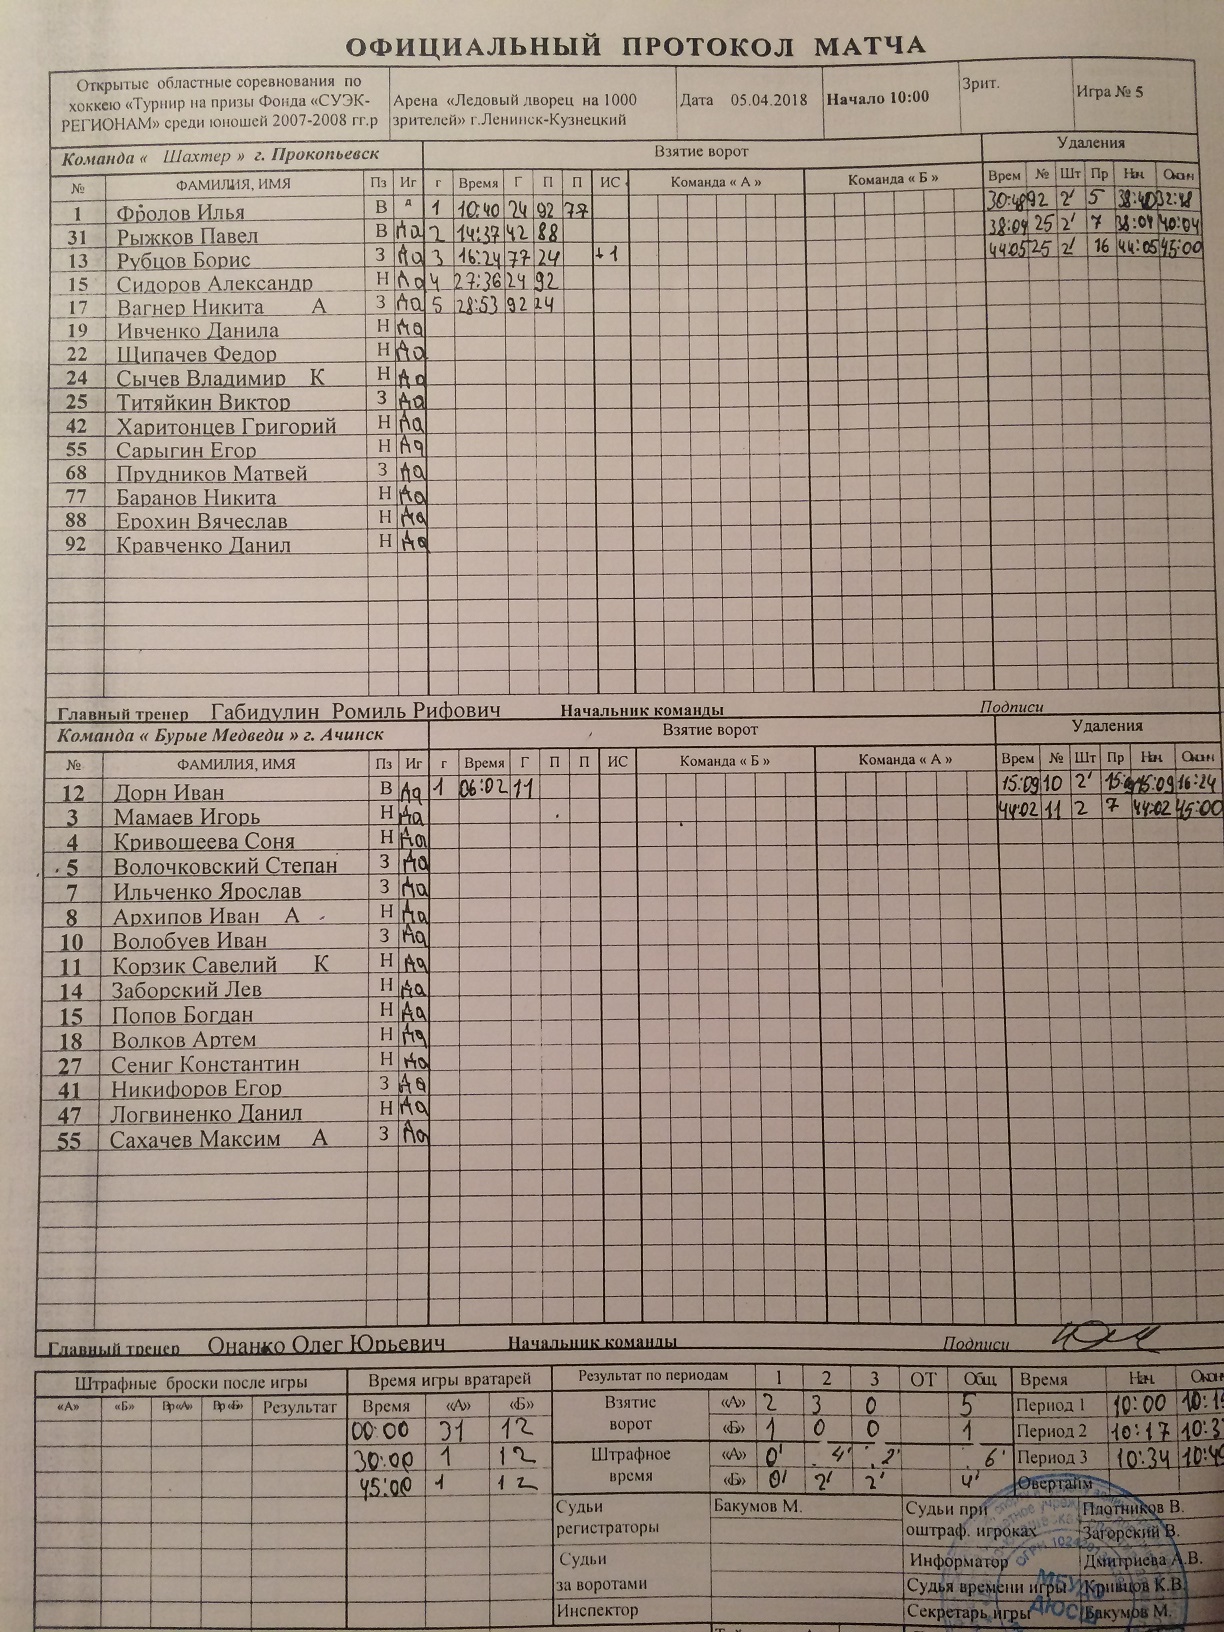 ОФИЦИАЛЬНЫЙ ПРОТОКОЛ МАТЧА
Открытые областные соревнования по хоккею «Турнир на призы Фонда «СУЭК-РЕГИОНАМ» среди юношей 2007-2008 гг.р
Арена «Ледовый дворец на 1000 зрителей» г.Ленинск-Кузнецкий
Дата 05.04.2018
Начало 10:00
Зрит.
Игра № 5
Команда « Шахтер » г. Прокопьевск
Взятие ворот
Удаления
№ ФАМИЛИЯ, ИМЯ Пз Иг г Время Г П П ИС Команда « А » Команда « Б » Врем № Шт Пр Нач Окон
1 Фролов Илья В 1 10:40 24 92 77 92 2' 5
31 Рыжков Павел В Да 2 14:37 42 88 38:04 25 2' 7 38:04 40:04
13 Рубцов Борис З Да 3 16:24 77 24 +1 44:05 25 2' 16 44:05 45:00
15 Сидоров Александр Н Да 4 27:36 24 92
17 Вагнер Никита А З Да 5 28:53 92 24
19 Ивченко Данила Н Да
22 Щипачев Федор Н Да
24 Сычев Владимир К Н Да
25 Титяйкин Виктор З Да
42 Харитонцев Григорий Н Да
55 Сарыгин Егор Н Да
68 Прудников Матвей З Да
77 Баранов Никита Н Да
88 Ерохин Вячеслав Н Да
92 Кравченко Данил Н Да
Главный тренер Габидулин Ромиль Рифович Начальник команды Подписи
Команда « Бурые Медведи » г. Ачинск
Взятие ворот
Удаления
№ ФАМИЛИЯ, ИМЯ Пз Иг г Время Г П П ИС Команда « Б » Команда « А » Врем № Шт Пр Нач Окон
12 Дорн Иван В Да 1 06:02 11 15:09 10 2' 15:09 16:24
3 Мамаев Игорь Н Да 44:02 11 2 7 44:02 45:00
4 Кривошеева Соня Н Да
5 Волочковский Степан З Да
7 Ильченко Ярослав З Да
8 Архипов Иван А Н Да
10 Волобуев Иван З Да
11 Корзик Савелий К Н Да
14 Заборский Лев Н Да
15 Попов Богдан Н Да
18 Волков Артем Н Да
27 Сениг Константин Н Да
41 Никифоров Егор З Да
47 Логвиненко Данил Н Да
55 Сахачев Максим А З Да
Главный тренер Онанко Олег Юрьевич Начальник команды Подписи
Штрафные броски после игры
«А» «Б» Вр«А» Вр«Б» Результат
Время игры вратарей
Время «А» «Б»
00:00 31 12
30:00 1 12
45:00 1 12
Результат по периодам 1 2 3 ОТ Общ
Взятие ворот «А» 2 3 0 5
«Б» 1 0 0 1
Штрафное время «А» 0' 4' 2' 6'
«Б» 0' 2' 2' 4'
Время Нач. Окон
Период 1 10:00
Период 2 10:17
Период 3 10:34
Овертайм
Судьи регистраторы Бакумов М.
Судьи за воротами
Инспектор
Судьи при оштраф. игроках Плотников В.
Загорский В.
Информатор Дмитриева А.В.
Судья времени игры Кривцов К.В.
Секретарь игры Бакумов М.
МБУДО
ДЮСШ